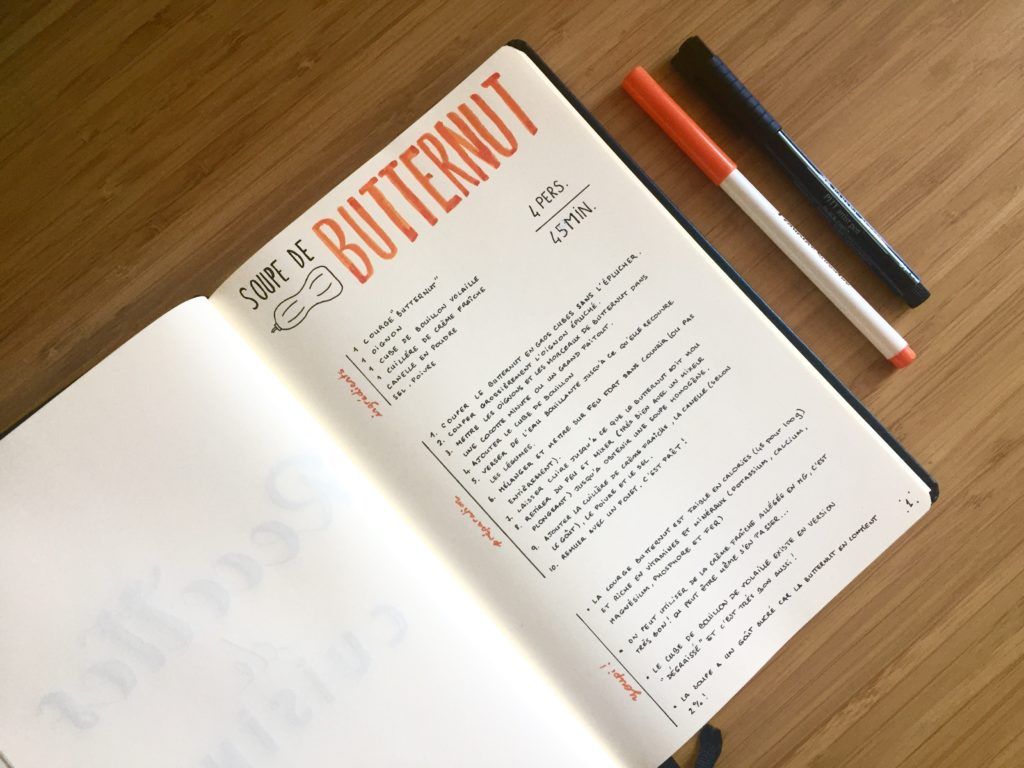 SOUPE DE
BUTTERNUT
4 PERS.
45 MIN.
ingrédients
1 COURGE "BUTTERNUT"
1 OIGNON
1 CUBE DE BOUILLON VOLAILLE
1 CUILLÈRE DE CRÈME FRAÎCHE
CANELLE EN POUDRE
SEL, POIVRE
préparation
1. COUPER LE BUTTERNUT EN GROS CUBES SANS L'ÉPLUCHER.
2. COUPER GROSSIÈREMENT L'OIGNON ÉPLUCHÉ.
3. METTRE LES OIGNONS ET LES MORCEAUX DE BUTTERNUT DANS
UNE COCOTTE MINUTE OU UN GRAND FAITOUT.
4. AJOUTER LE CUBE DE BOUILLON
5. VERSER DE L'EAU BOUILLANTE JUSQU'À CE QU'ELLE RECOUVRE
LES LÉGUMES.
6. MÉLANGER ET METTRE SUR FEU FORT SANS COUVRIR (OU PAS
ENTIÈREMENT).
7. LAISSER CUIRE JUSQU'À CE QUE LE BUTTERNUT SOIT MOU
8. RETIRER DU FEU ET MIXER (TRÈS BIEN AVEC UN MIXEUR
PLONGEANT) JUSQU'À OBTENIR UNE SOUPE HOMOGÈNE.
9. AJOUTER LA CUILLÈRE DE CRÈME FRAÎCHE, LA CANELLE (SELON
LE GOÛT), LE POIVRE ET LE SEL.
10. REMUER AVEC UN FOUET, C'EST PRÊT!
youpi!
• LA COURGE BUTTERNUT EST FAIBLE EN CALORIES (45 POUR 100g)
ET RICHE EN VITAMINES ET MINÉRAUX (POTASSIUM, CALCIUM,
MAGNÉSIUM, PHOSPHORE ET FER)
• ON PEUT UTILISER DE LA CRÈME FRAÎCHE ALLÉGÉE EN MG, C'EST
TRÈS BON! ON PEUT ÊTRE MÊME S'EN PASSER...
• LE CUBE DE BOUILLON DE VOLAILLE EXISTE EN VERSION
"DÉGRAISSÉ" ET C'EST TRÈS BON AUSSI!
• LA SOUPE A UN GOÛT SUCRÉ CAR LA BUTTERNUT EN CONTIENT
2%!
1.
Recettes
de
cuisine